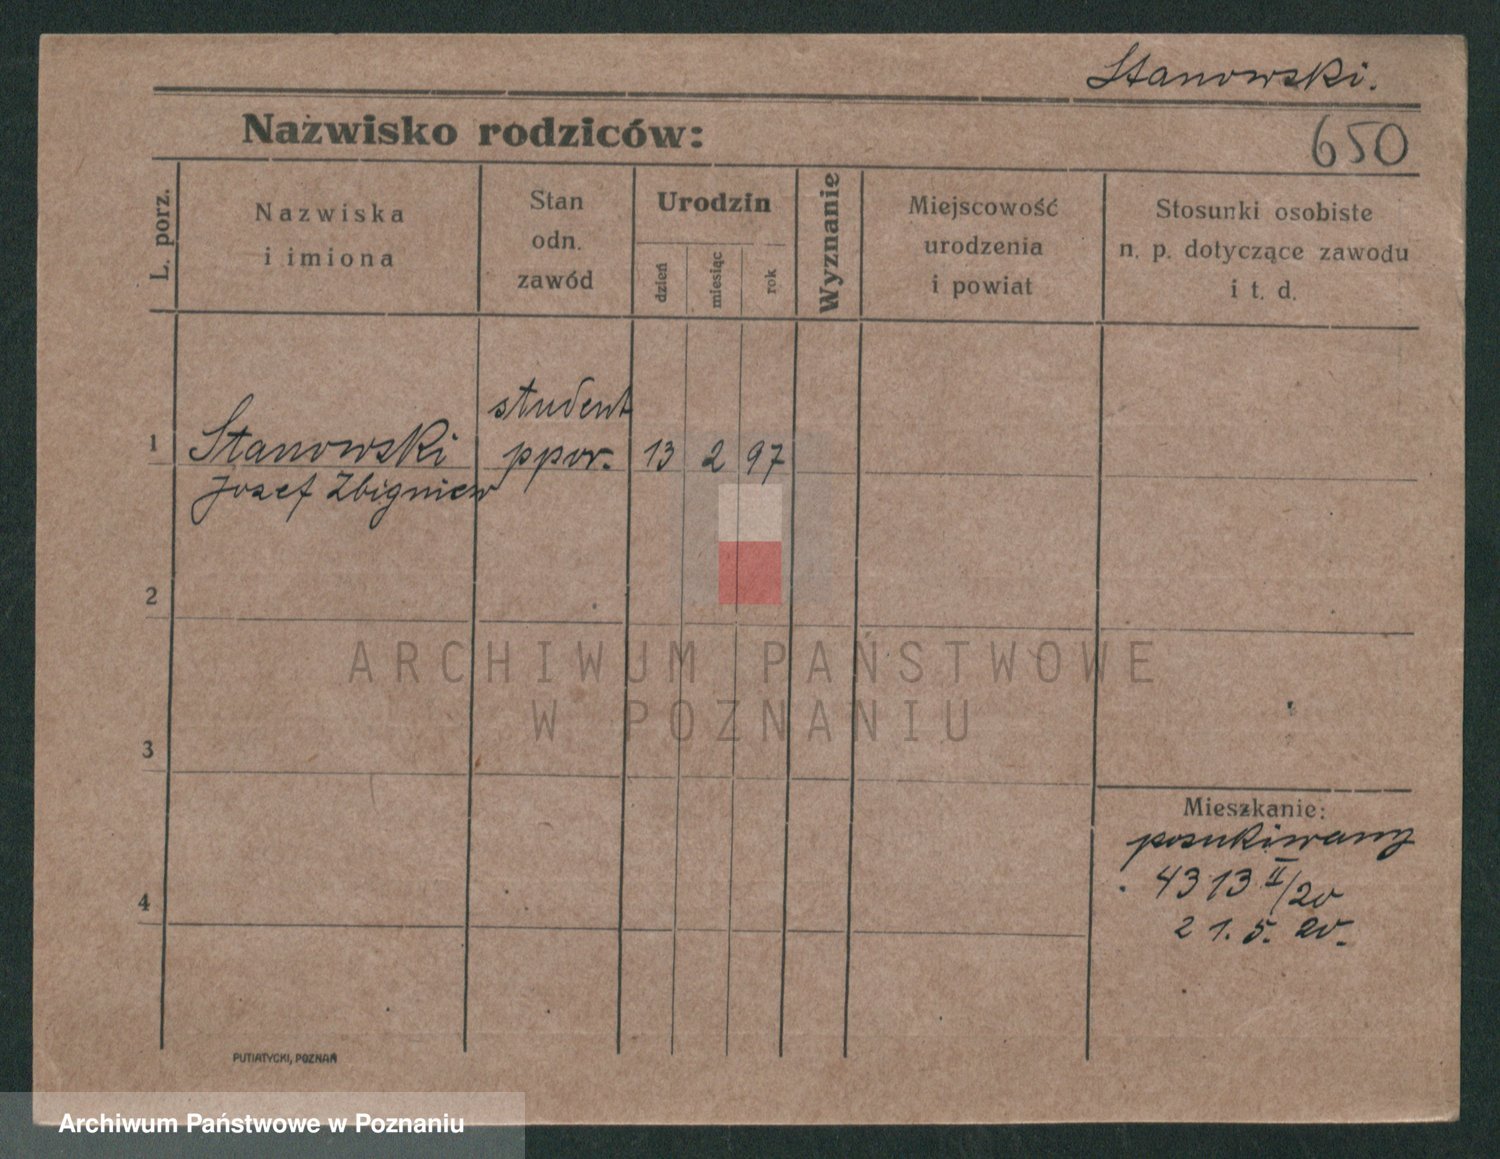 Stanowski.
Nazwisko rodziców:
650
L. porz.
Nazwiska
i imiona
Stan
odn.
zawód
Urodzin
dzień
miesiąc
rok
Wyznanie
Miejscowość
urodzenia
i powiat
Stosunki osobiste
n. p. dotyczące zawodu
i t. d.
student
1 Stanowski ppor. 13 2 97
Jozef Zbigniew
2
ARCHIWUM PAŃSTWOWE
W POZNANIU
3
Mieszkanie:
poszukiwany
4313 II/20
4
21. 5. 20.
PUTIATYCKI, POZNAŃ
Archiwum Państwowe w Poznaniu